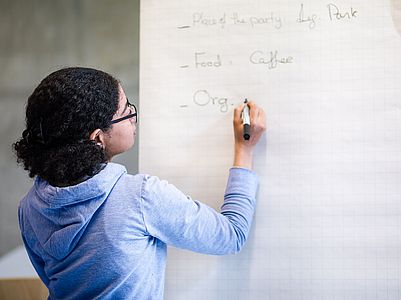 _ Place of the party Lg. Park
_ Food. Caffee
_ Org.